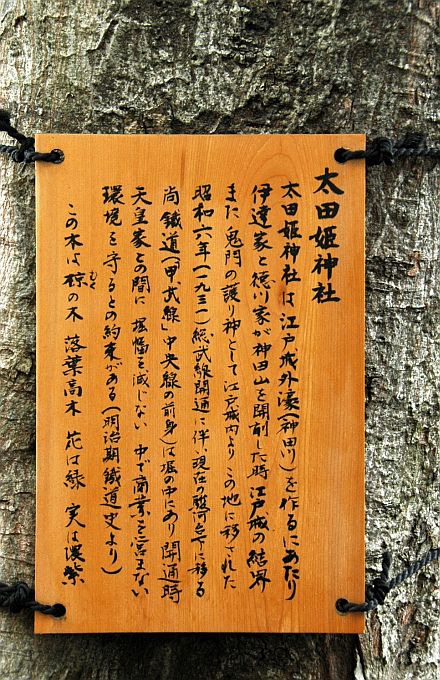 太田姫神社
太田姫神社は江戸城外濠(神田川)を作るにあたり
伊達家と徳川家が神田山を開削した時 江戸城の結界
また 鬼門の護り神として江戸城内より この地に移された
昭和六年(一九三一)総武線開通に伴い 現在の駿河台下に移る
尚 鐵道(「甲武線」中央線の前身)は堀の中にあり 開通時
天皇家との間に 堀幅を減じない 中で商業を営まない
環境を守るとの約束がある(明治期鐵道史より)
この木は椋の木 落葉高木 花は緑 実は濃紫
むく